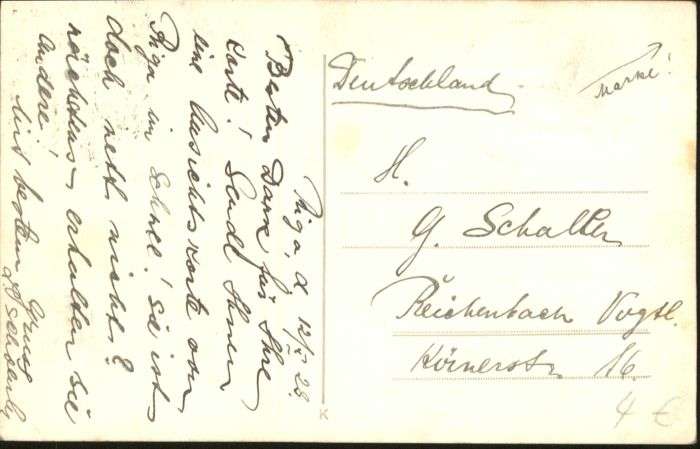 Riga, d 12/V 28.
Besten Dank für Ihre
Carte! Sende Ihnen
eine Ansichtskarte von
Riga im Schnee! Sie ist
doch nett, nicht?
nächstens erhalten sie
andere!
Mit bestem Gruss
Deutschland
Marke!
H.
G. Schaller
Reichenbach Vogtl
Körnerstr 16.
4 €
K